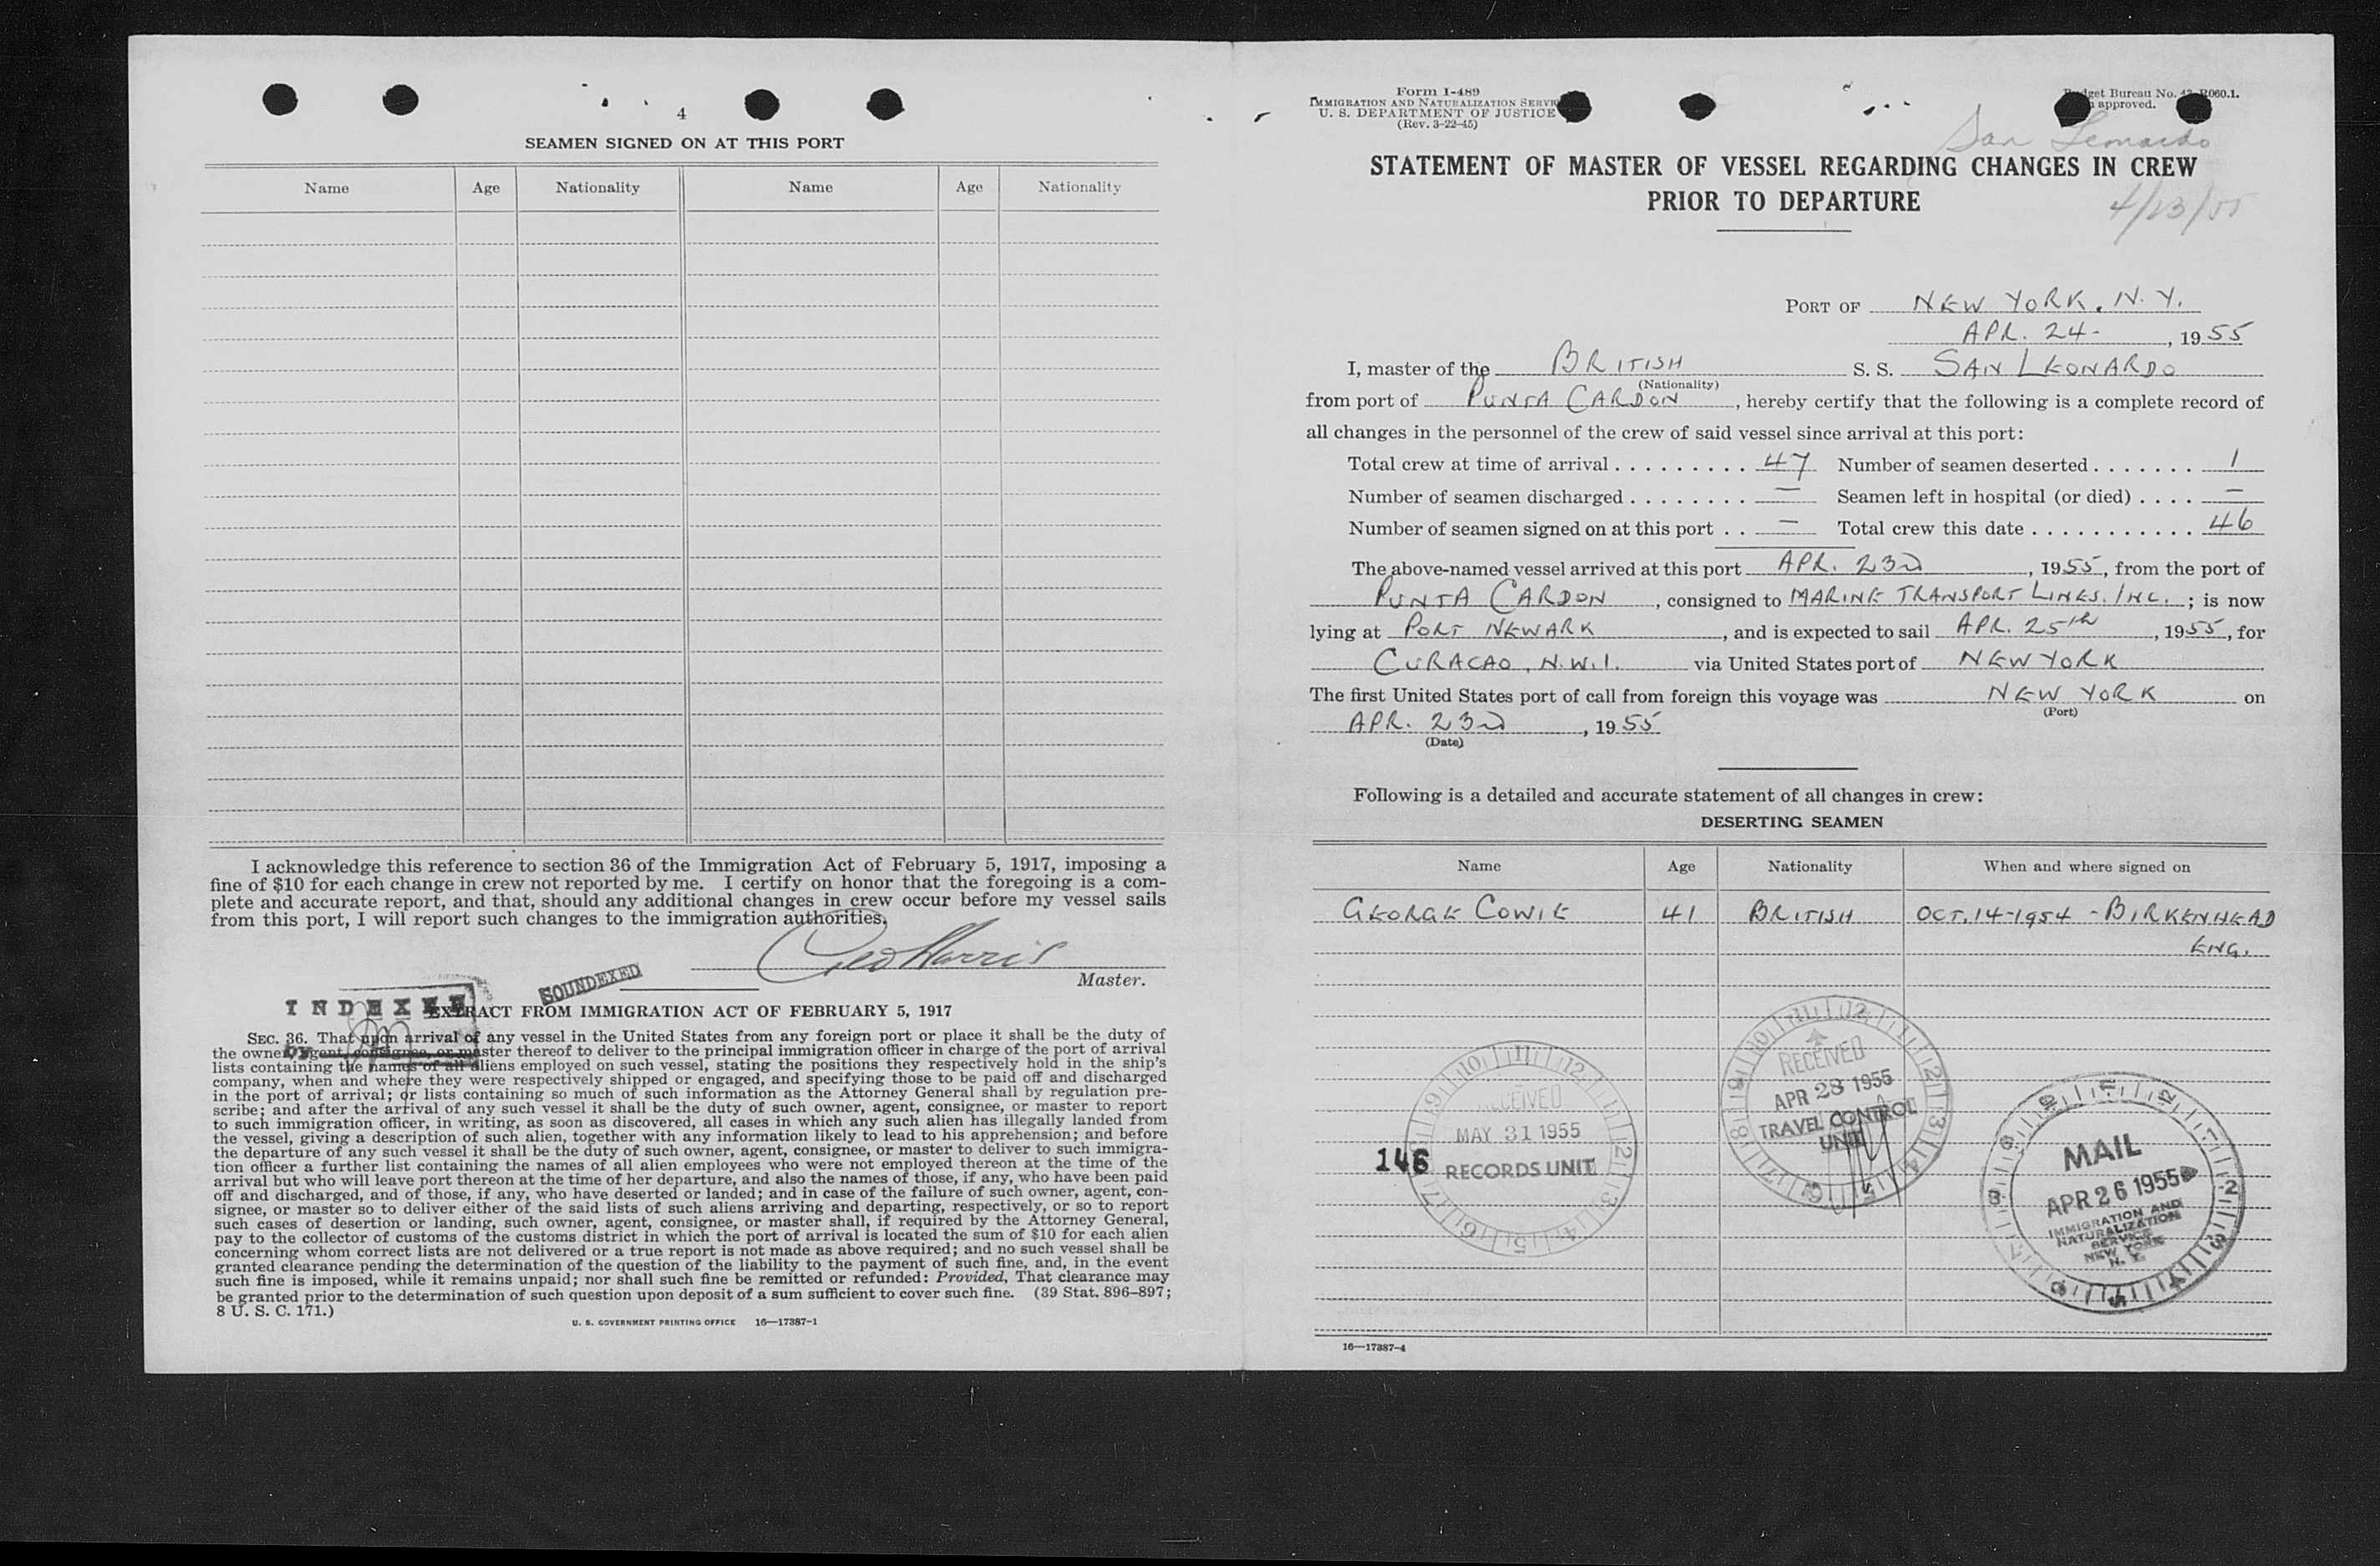 4
SEAMEN SIGNED ON AT THIS PORT
Name Age Nationality Name Age Nationality
I acknowledge this reference to section 36 of the Immigration Act of February 5, 1917, imposing a
fine of $10 for each change in crew not reported by me. I certify on honor that the foregoing is a com-
plete and accurate report, and that, should any additional changes in crew occur before my vessel sails
from this port, I will report such changes to the immigration authorities.
Geo Harris
Master.
SOUNDEXED
INDEXED
EXTRACT FROM IMMIGRATION ACT OF FEBRUARY 5, 1917
SEC. 36. That upon arrival of any vessel in the United States from any foreign port or place it shall be the duty of
the owner, agent, consignee, or master thereof to deliver to the principal immigration officer in charge of the port of arrival
lists containing the names of all aliens employed on such vessel, stating the positions they respectively hold in the ship's
company, when and where they were respectively shipped or engaged, and specifying those to be paid off and discharged
in the port of arrival; or lists containing so much of such information as the Attorney General shall by regulation pre-
scribe; and after the arrival of any such vessel it shall be the duty of such owner, agent, consignee, or master to report
to such immigration officer, in writing, as soon as discovered, all cases in which any such alien has illegally landed from
the vessel, giving a description of such alien, together with any information likely to lead to his apprehension; and before
the departure of any such vessel it shall be the duty of such owner, agent, consignee, or master to deliver to such immigra-
tion officer a further list containing the names of all alien employees who were not employed thereon at the time of the
arrival but who will leave port thereon at the time of her departure, and also the names of those, if any, who have been paid
off and discharged, and of those, if any, who have deserted or landed; and in case of the failure of such owner, agent, con-
signee, or master so to deliver either of the said lists of such aliens arriving and departing, respectively, or so to report
such cases of desertion or landing, such owner, agent, consignee, or master shall, if required by the Attorney General,
pay to the collector of customs of the customs district in which the port of arrival is located the sum of $10 for each alien
concerning whom correct lists are not delivered or a true report is not made as above required; and no such vessel shall be
granted clearance pending the determination of the question of the liability to the payment of such fine, and, in the event
such fine is imposed, while it remains unpaid; nor shall such fine be remitted or refunded: Provided, That clearance may
be granted prior to the determination of such question upon deposit of a sum sufficient to cover such fine. (39 Stat. 896–897;
8 U. S. C. 171.)
U. S. GOVERNMENT PRINTING OFFICE 16—17387-1
Form I-489
IMMIGRATION AND NATURALIZATION SERVICE
U. S. DEPARTMENT OF JUSTICE
(Rev. 3-22-45)
Budget Bureau No. 43-R060.1.
approved.
San Leonardo
STATEMENT OF MASTER OF VESSEL REGARDING CHANGES IN CREW
PRIOR TO DEPARTURE
4/23/55
PORT OF NEW YORK. N.Y.
APR. 24-, 1955
I, master of the BRITISH S. S. SAN LEONARDO
(Nationality)
from port of PUNTA CARDON, hereby certify that the following is a complete record of
all changes in the personnel of the crew of said vessel since arrival at this port:
Total crew at time of arrival . . . . . . . . . 47 Number of seamen deserted . . . . . . . 1
Number of seamen discharged . . . . . . . . — Seamen left in hospital (or died) . . . . —
Number of seamen signed on at this port . . — Total crew this date . . . . . . . . . . . 46
The above-named vessel arrived at this port APR. 23D, 1955, from the port of
PUNTA CARDON, consigned to MARINE TRANSPORT LINES. INC.; is now
lying at PORT NEWARK, and is expected to sail APR. 25th, 1955, for
CURACAO, N.W.I. via United States port of NEW YORK
The first United States port of call from foreign this voyage was NEW YORK on
(Port)
APR. 23D, 1955
(Date)
Following is a detailed and accurate statement of all changes in crew:
DESERTING SEAMEN
Name Age Nationality When and where signed on
GEORGE COWIE 41 BRITISH OCT. 14-1954 - BIRKENHEAD
ENG.
RECEIVED
APR 28 1955
TRAVEL CONTROL
UNIT
RECEIVED
MAY 31 1955
RECORDS UNIT
146
MAIL
APR 26 1955
IMMIGRATION AND
NATURALIZATION
SERVICE
NEW YORK
N. Y.
16—17387-4